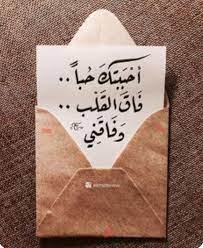 أحْبَبتكَ حُباً ..
فَاقَ القَلْب ..
وَفَاقَني